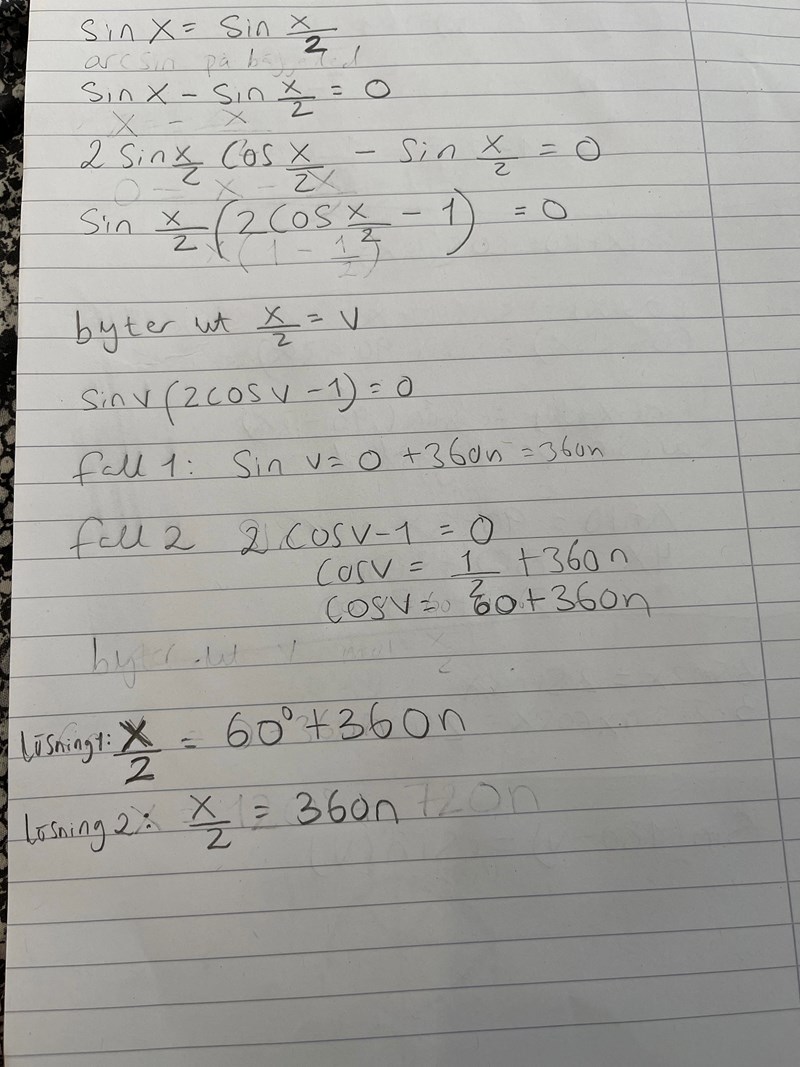 sin x = sin x/2
arcsin på
sin x - sin x/2 = 0
x - x
2 sin x/2 cos x/2 - sin x/2 = 0
0 = x - x
sin x/2 (2 cos x/2 - 1) = 0
(1 - 1/2)
byter ut x/2 = v
sin v (2 cos v - 1) = 0
fall 1: sin v = 0 + 360n = 360n
fall 2 2 cos v - 1 = 0
cos v = 1/2 + 360n
cos v = 60 + 360n
byter ut v mot x/2
lösning 1: x/2 = 60° + 360n
lösning 2: x/2 = 360n 720n